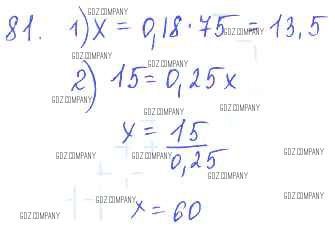 81. 1) x = 0,18 · 75 = 13,5
2) 15 = 0,25x
x = 15/0,25
x = 60
GDZ.COMPANY
GDZ.COMPANY
GDZ.COMPANY
GDZ.COMPANY
GDZ.COMPANY
GDZ.COMPANY
GDZ.COMPANY
GDZ.COMPANY
GDZ.COMPANY
GDZ.COMPANY
GDZ.COMPANY
GDZ.COMPANY
GDZ.COMPANY
GDZ.COMPANY